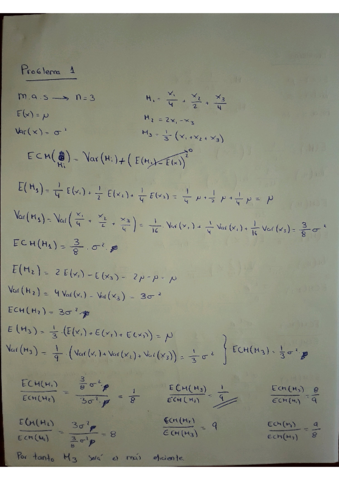 Problema 1
m.a.s → n=3    M₁ = x₁/4 + x₂/2 + x₃/4
E(x) = μ    M₂ = 2x₁ - x₂
Var(x) = σ²    M₃ = 1/3 (x₁+x₂+x₃)
ECM(M₁) = Var(M₁) + (E(M₁) - E(x))² 0
E(M₁) = 1/4 E(x₁) + 1/2 E(x₂) + 1/4 E(x₃) = 1/4 μ + 1/2 μ + 1/4 μ = μ
Var(M₁) = Var(x₁/4 + x₂/2 + x₃/4) = 1/16 Var(x₁) + 1/4 Var(x₂) + 1/16 Var(x₃) = 3/8 σ²
ECM(M₁) = 3/8 · σ²
E(M₂) = 2 E(x₁) - E(x₂) = 2μ - μ = μ
Var(M₂) = 4 Var(x₁) - Var(x₂) = 3σ²
ECM(M₂) = 3σ²
E(M₃) = 1/3 (E(x₁) + E(x₂) + E(x₃)) = μ
Var(M₃) = 1/9 (Var(x₁) + Var(x₂) + Var(x₃)) = 1/3 σ² } ECM(M₃) = 1/3 σ²
ECM(M₁)/ECM(M₂) = 3/8 σ² / 3σ² = 1/8    ECM(M₃)/ECM(M₂) = 1/9    ECM(M₃)/ECM(M₁) = 8/9
ECM(M₂)/ECM(M₁) = 3σ² / 3/8 σ² = 8    ECM(M₂)/ECM(M₃) = 9    ECM(M₁)/ECM(M₃) = 9/8
Por tanto M₃ es más eficiente